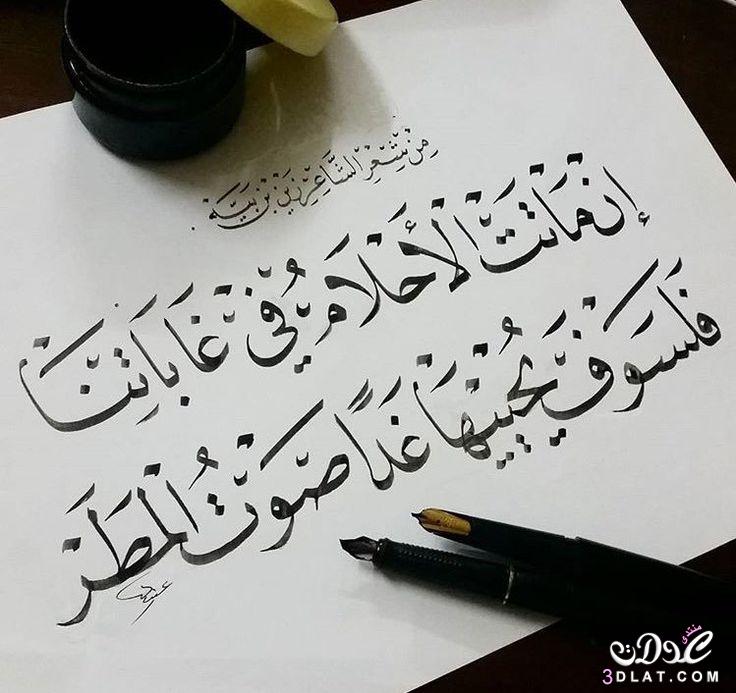 مِنْ شِعْرِ الشَّاعِرِ زَيْن بْن بَيَّه
إِنْ مَاتَتِ الْأَحْلَامُ فِي غَابَاتِنَا
فَلَسَوْفَ يُحْيِيْهَا غَدًا صَوْتُ الْمَطَرْ
منتدى
عدلات
3DLAT.COM